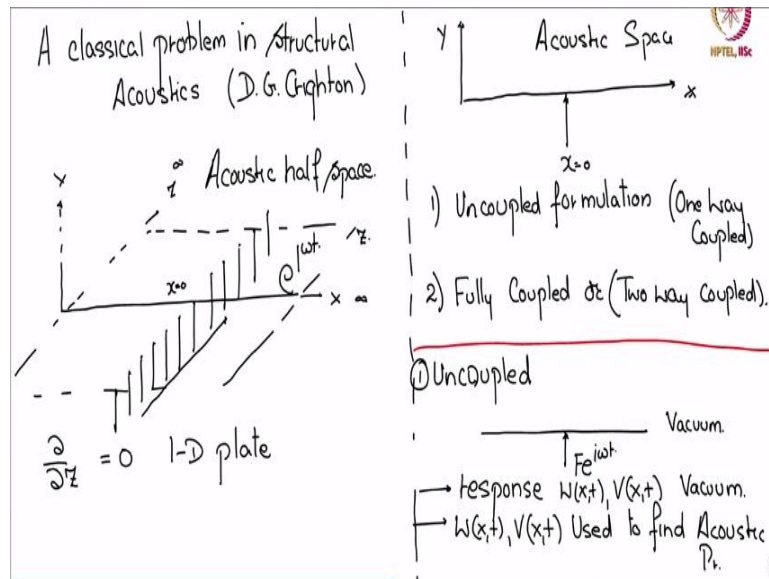 A classical problem in Structural
Acoustics (D.G. Crighton)
Y
∞
z
Acoustic half space.
z
x=0
e^iωt
x ∞
∂/∂z = 0 1-D plate
Y
Acoustic Space
NPTEL, IISc
x
x=0
1) Uncoupled formulation (One way
Coupled)
2) Fully Coupled or (Two way Coupled).
① Uncoupled
Vacuum.
Fe^iωt
→ response W(x,t), V(x,t) Vacuum.
→ W(x,t), V(x,t) Used to find Acoustic
Pr.